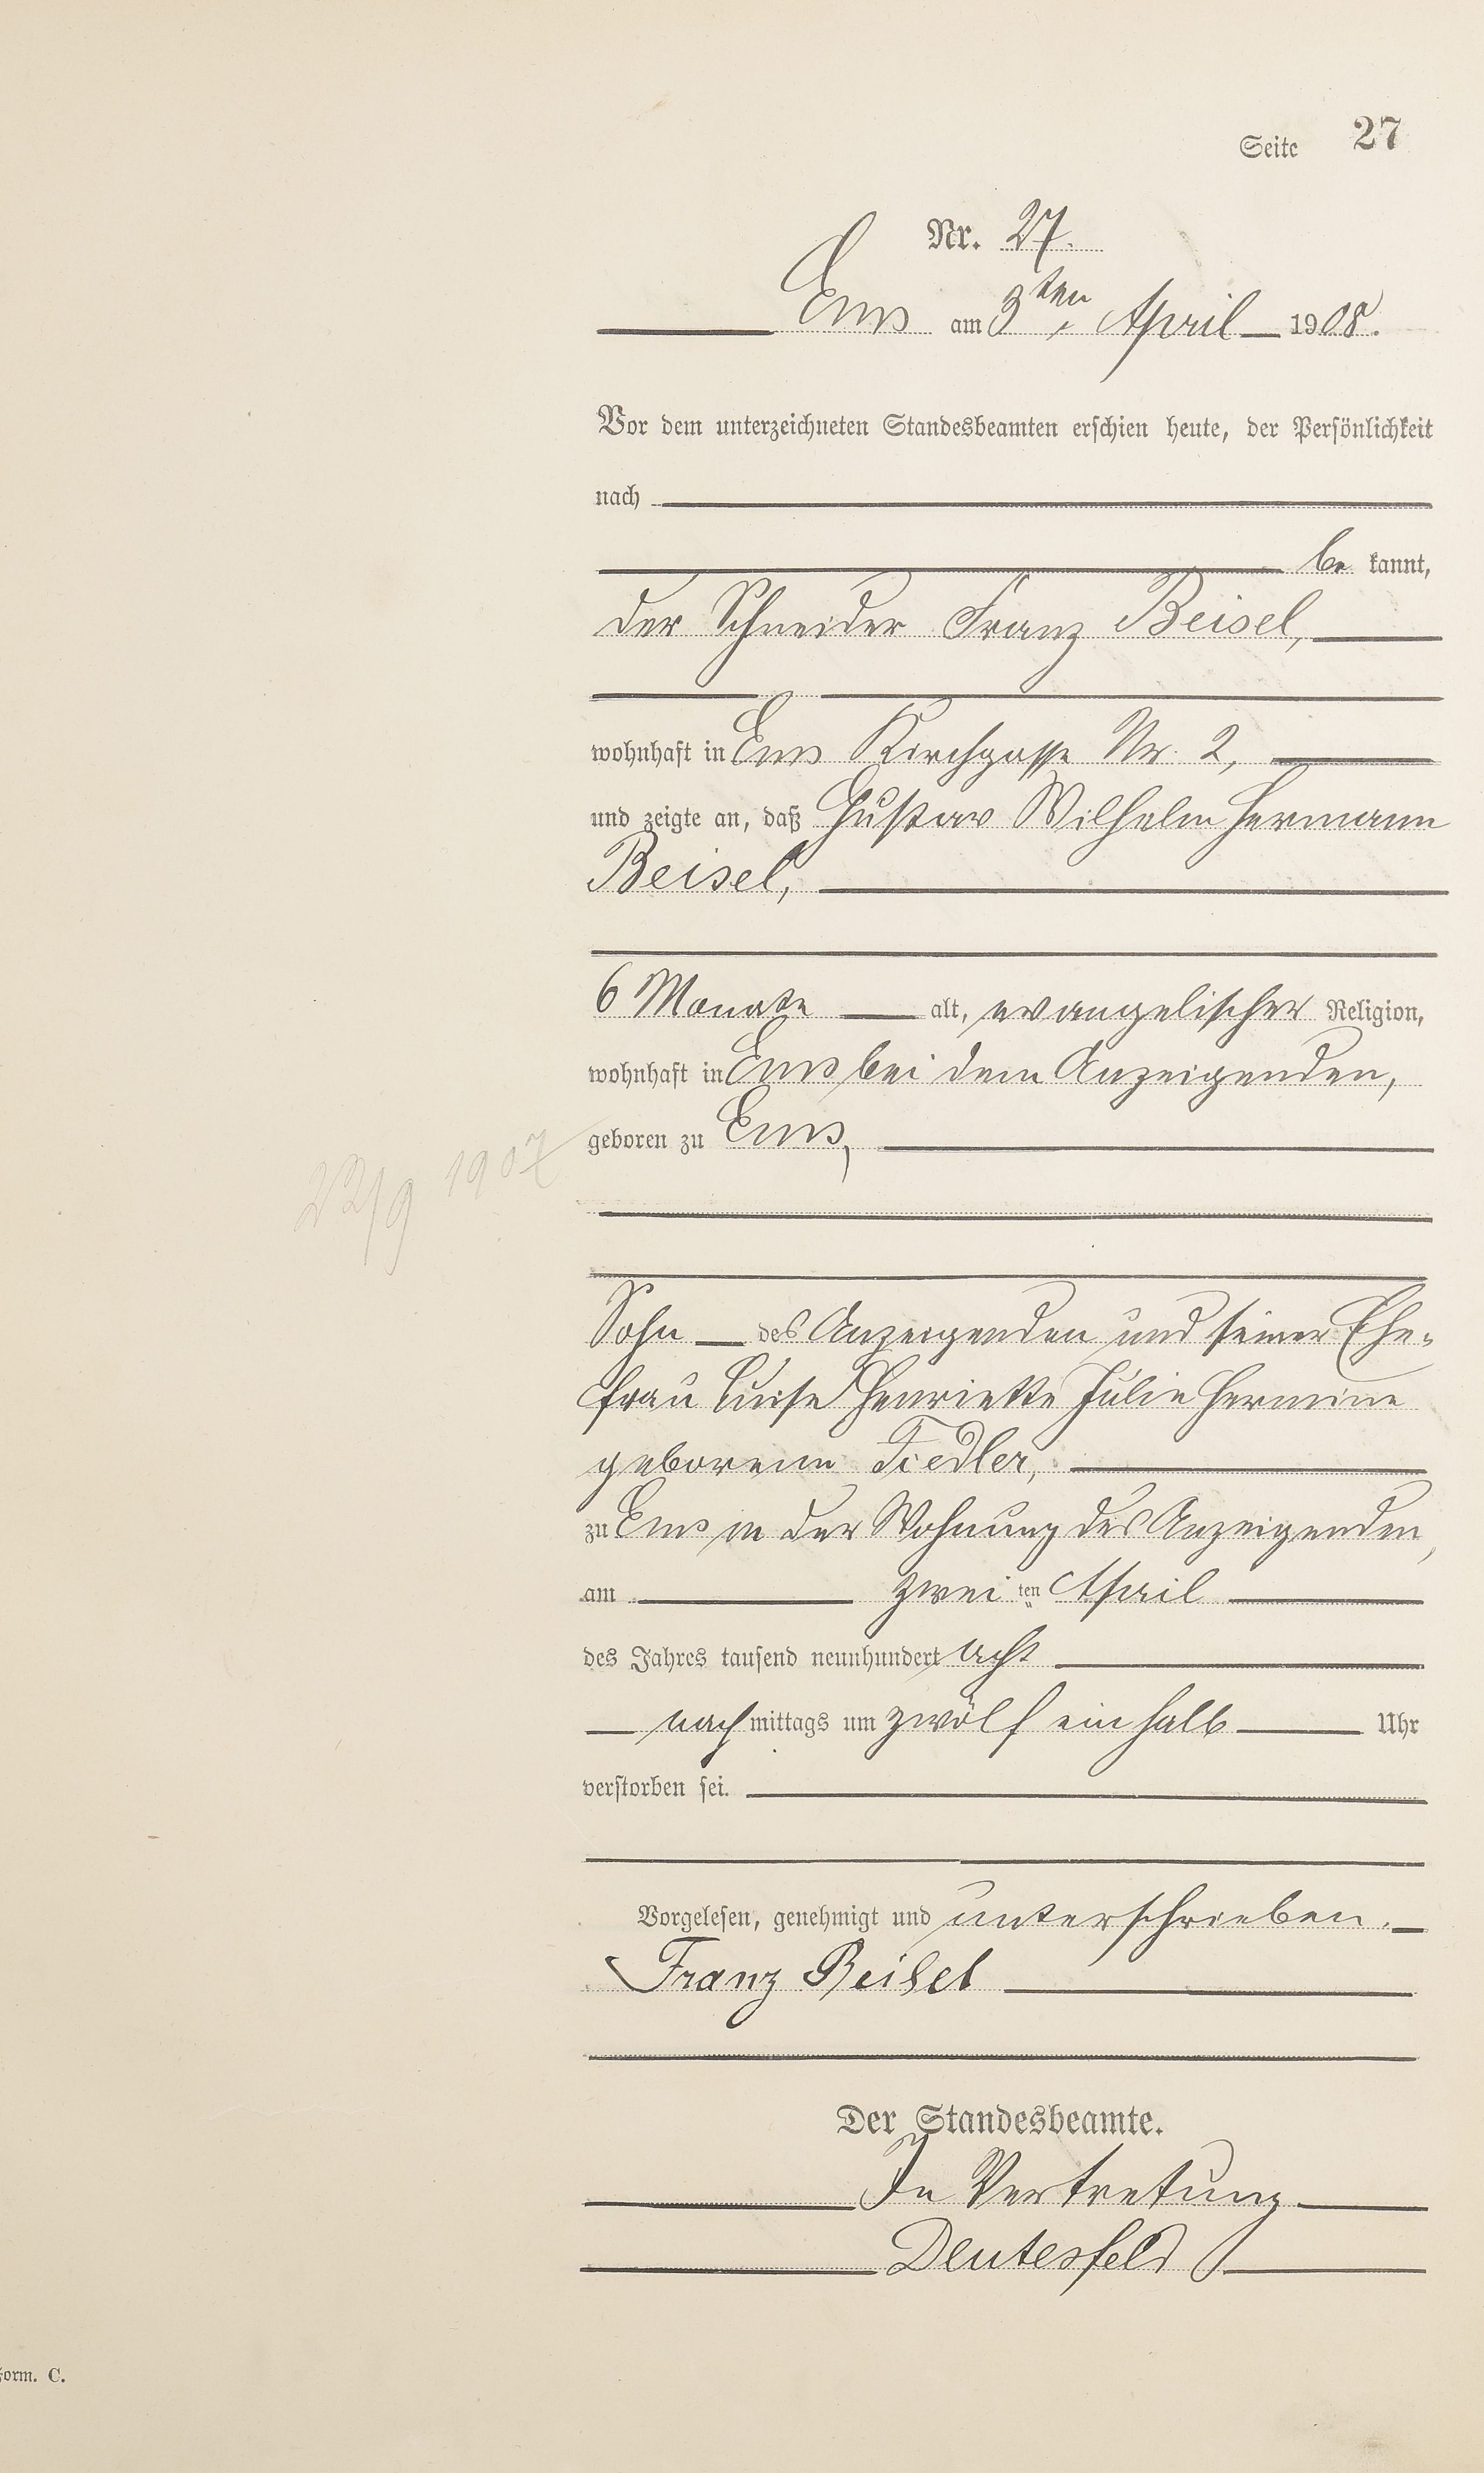 Seite 27
Nr. 27.
Ems am 3ten April 1908.
Vor dem unterzeichneten Standesbeamten erschien heute, der Persönlichkeit
nach
be kannt,
der Schneider Franz Beisel,
wohnhaft in Ems Kirchgasse Nr. 2,
und zeigte an, daß Gustav Wilhelm Hermann
Beisel,
6 Monate alt, evangelischer Religion,
wohnhaft in Ems bei dem Anzeigenden,
geboren zu Ems,
22/9 1907
Sohn des Anzeigenden und seiner Ehe-
frau Luise Henriette Julie Hermine
geborenen Fiedler,
zu Ems in der Wohnung des Anzeigenden,
am zwei ten April
des Jahres tausend neunhundert acht
nach mittags um zwölf ein halb Uhr
verstorben sei.
Vorgelesen, genehmigt und unterschrieben.
Franz Beisel
Der Standesbeamte.
In Vertretung
Deutesfeld
Form. C.